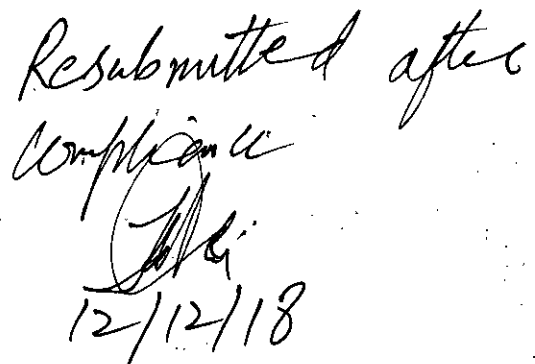 Resubmitted after
compliance
12/12/18